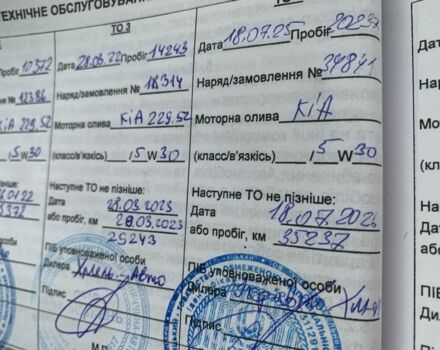 ТЕХНІЧНЕ ОБСЛУГОВУВАННЯ
ТО 3
Пробіг 10372
№ 12386
KIA 229.52
/5W30
Дата 28.03.22 Пробіг 14243
Наряд/замовлення № 18314
Моторна олива KIA 229.52
(класс/в'язкість) /5W30
Наступне ТО не пізніше:
Дата 28.03.2023
або пробіг, км 28.03.2023
29243
ПІБ уповноваженої особи
Дилера
Підпис
М.П.
Дата 18.07.25 Пробіг 20237
Наряд/замовлення № 34841
Моторна олива KiA
(класс/в'язкість) /5W30
Наступне ТО не пізніше:
Дата 18.07.2026
або пробіг, км 35237
ПІБ уповноваженої особи
Дилера
Підпис
Дата
Наряд
Мотор
(класс
Насту
Дата
або п
ПІБ
Дил
Під